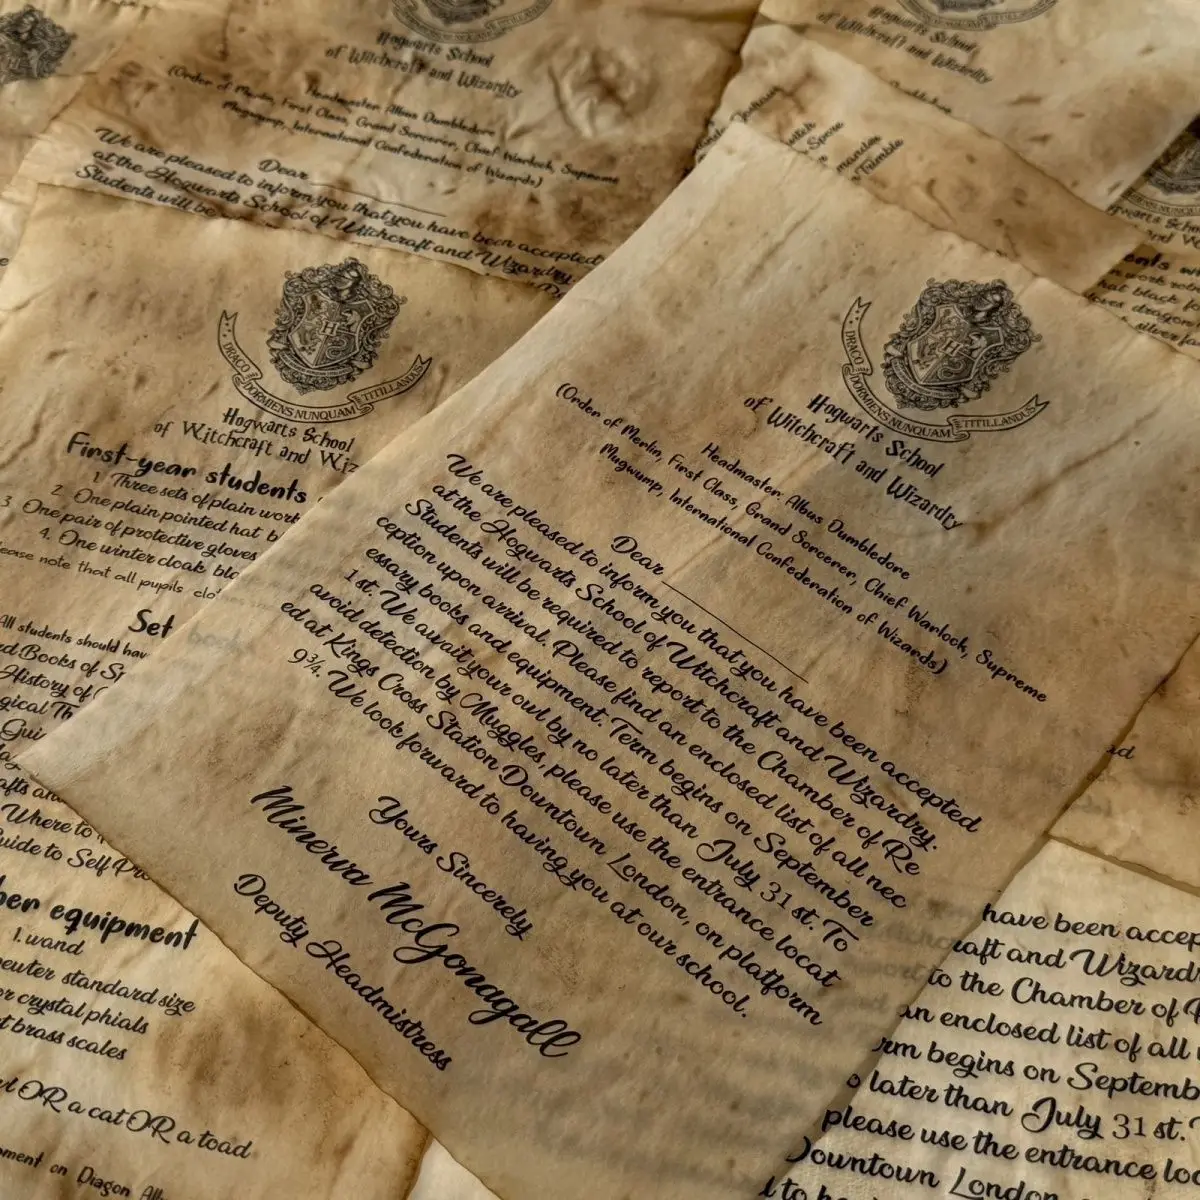 Hogwarts School
of Witchcraft and Wizardry
Headmaster: Albus Dumbledore
(Order of Merlin, First Class, Grand Sorcerer, Chief Warlock, Supreme
Mugwump, International Confederation of Wizards)
Dear
We are pleased to inform you that you have been accepted
at the Hogwarts School of Witchcraft and Wizardry
Students will be
DRACO DORMIENS NUNQUAM TITILLANDUS
Hogwarts School
of Witchcraft and Wiz
First-year students
1. Three sets of plain work
2. One plain pointed hat b
3 One pair of protective gloves
4. One winter cloak bla
ease note that all pupils clo
Set
All students should hav
rd Books of S
History of
gical Th
Gui
afts an
Where to
Guide to Self Pro
her equipment
1. wand
pewter standard size
or crystal phials
t brass scales
OR a cat OR a toad
pment on Diagon All
Hogwarts School
of Witchcraft and Wizardry
DRACO DORMIENS NUNQUAM TITILLANDUS
Hogwarts School
of Witchcraft and Wizardry
Headmaster: Albus Dumbledore
(Order of Merlin, First Class, Grand Sorcerer, Chief Warlock, Supreme
Mugwump, International Confederation of Wizards)
Dear
We are pleased to inform you that you have been accepted
at the Hogwarts School of Witchcraft and Wizardry.
Students will be required to report to the Chamber of Re
ception upon arrival. Please find an enclosed list of all nec
essary books and equipment. Term begins on September
1 st. We await your owl by no later than July 31 st. To
avoid detection by Muggles, please use the entrance locat
ed at Kings Cross Station Downtown London, on platform
9¾. We look forward to having you at our school.
Yours Sincerely
Minerva McGonagall
Deputy Headmistress
have been accep
raft and Wizard
to the Chamber of
an enclosed list of all
rm begins on Septemb
o later than July 31 st.
please use the entrance loc
Downtown London